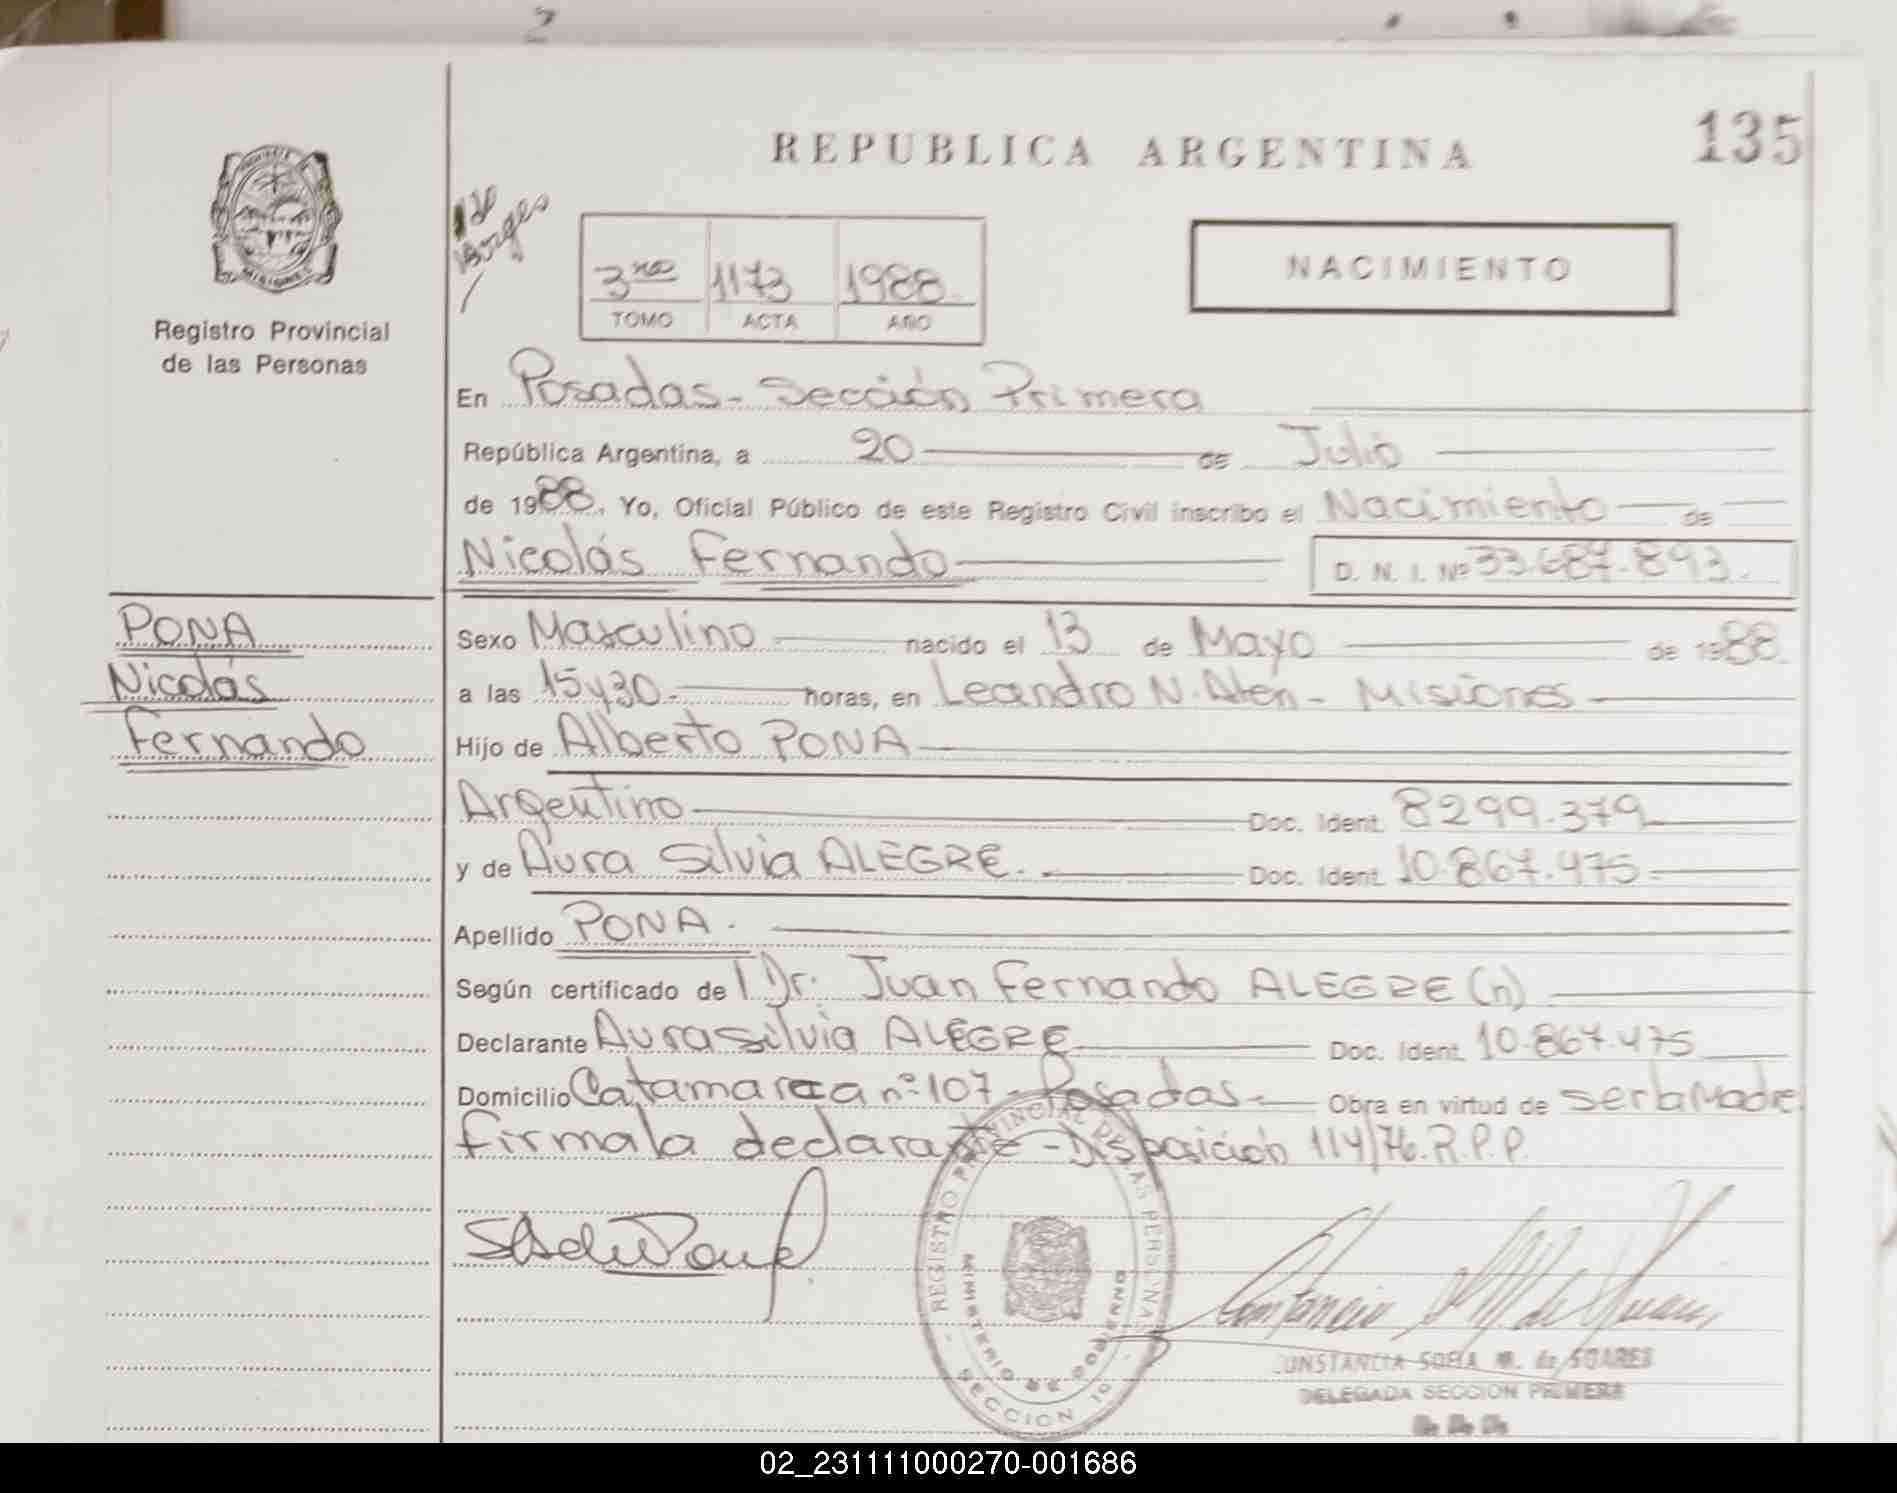 REPUBLICA ARGENTINA
135
Registro Provincial
de las Personas
3ro 1173 1988
TOMO ACTA AÑO
NACIMIENTO
En Posadas - Sección Primera
República Argentina, a 20 de Julio
de 1988. Yo, Oficial Público de este Registro Civil inscribo el Nacimiento de
Nicolás Fernando D. N. I. Nº 33.687.893.
PONA
Nicolás
Fernando
Sexo Masculino nacido el 13 de Mayo de 1988.
a las 15y30.- horas, en Leandro N. Alen - Misiones
Hijo de Alberto PONA
Argentino Doc. Ident. 8299.379
y de Aura Silvia ALEGRE. Doc. Ident. 10.867.475
Apellido PONA.
Según certificado de l Dr. Juan Fernando ALEGRE (n)
Declarante Aura Silvia ALEGRE Doc. Ident. 10.867.475
Domicilio Catamarca nº 107 - Posadas - Obra en virtud de ser la Madre
firma la declarante - Disposición 114/76. R.P.P.
REGISTRO PROVINCIAL DE LAS PERSONAS
MINISTERIO DE GOBIERNO
SECCION 1º
CONSTANCIA SOFIA M. de SOARES
DELEGADA SECCION PRIMERA
02_231111000270-001686